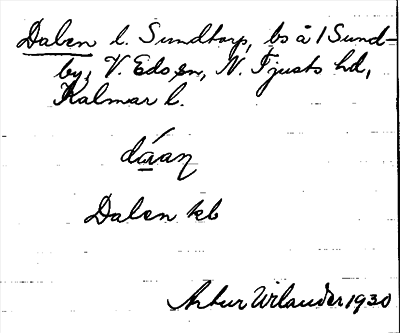 Dalen l. Sundtorp, bs å 1 Sund-
by, V. Eds sn, N. Tjusts hd,
Kalmar l.
dáran
Dalen kb
Artur Wrlander 1930